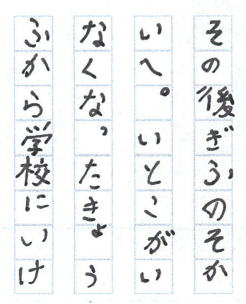 その後ぎふのそか
いへ。いとこがい
なくな、たきょう
ふから学校にいけ